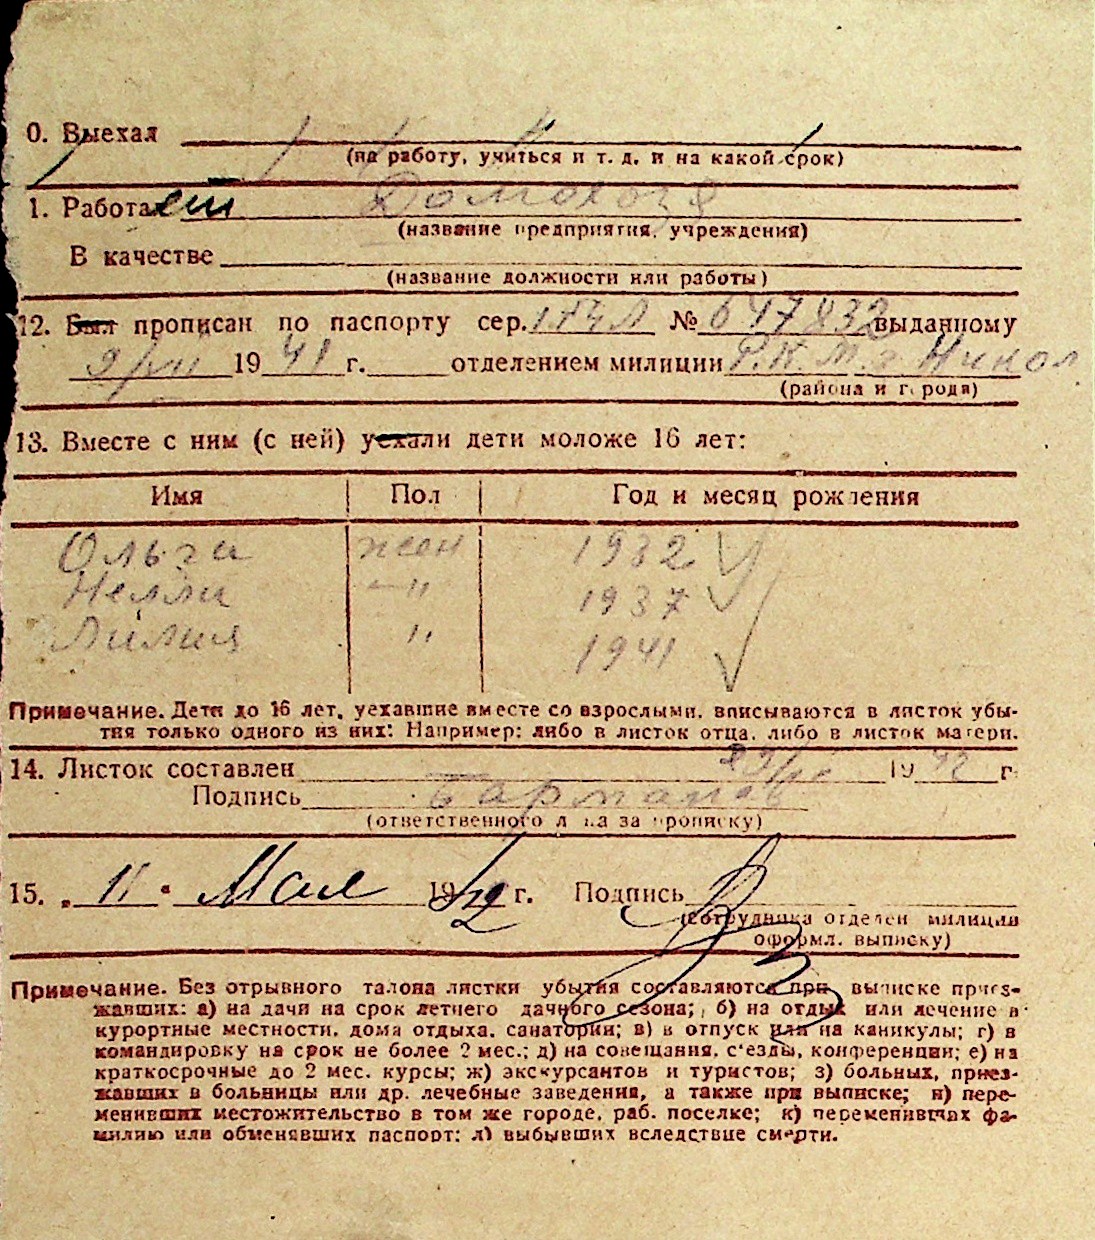 0. Выехал
(на работу, учиться и т. д. и на какой срок)
1. Работает Домохоз
(название предприятия, учреждения)
В качестве
(название должности или работы)
12. Был прописан по паспорту сер. № 647832 выданному
1941 г. отделением милиции Р.К.М. г Никол
(района и города)
13. Вместе с ним (с ней) уехали дети моложе 16 лет:
Имя Пол Год и месяц рождения
Ольга жен 1932
Нелли —"— 1937
Лилия " 1941
Примечание. Дети до 16 лет, уехавшие вместе со взрослыми, вписываются в листок убы-
тия только одного из них: Например: либо в листок отца, либо в листок матери.
14. Листок составлен 1942 г.
Подпись
(ответственного лица за прописку)
15. „11" Мая 1942 г. Подпись
(сотрудника отделен милиции
оформл. выписку)
Примечание. Без отрывного талона листки убытия составляются при выписке приез-
жавших: а) на дачи на срок летнего дачного сезона; б) на отдых или лечение в
курортные местности, дома отдыха, санатории; в) в отпуск или на каникулы; г) в
командировку на срок не более 2 мес.; д) на совещания, с'езды, конференции; е) на
краткосрочные до 2 мес. курсы; ж) экскурсантов и туристов; з) больных, приез-
жавших в больницы или др. лечебные заведения, а также при выписке; и) пере-
менивших местожительство в том же городе, раб. поселке; к) переменивших фа-
милию или обменявших паспорт; л) выбывших вследствие смерти.